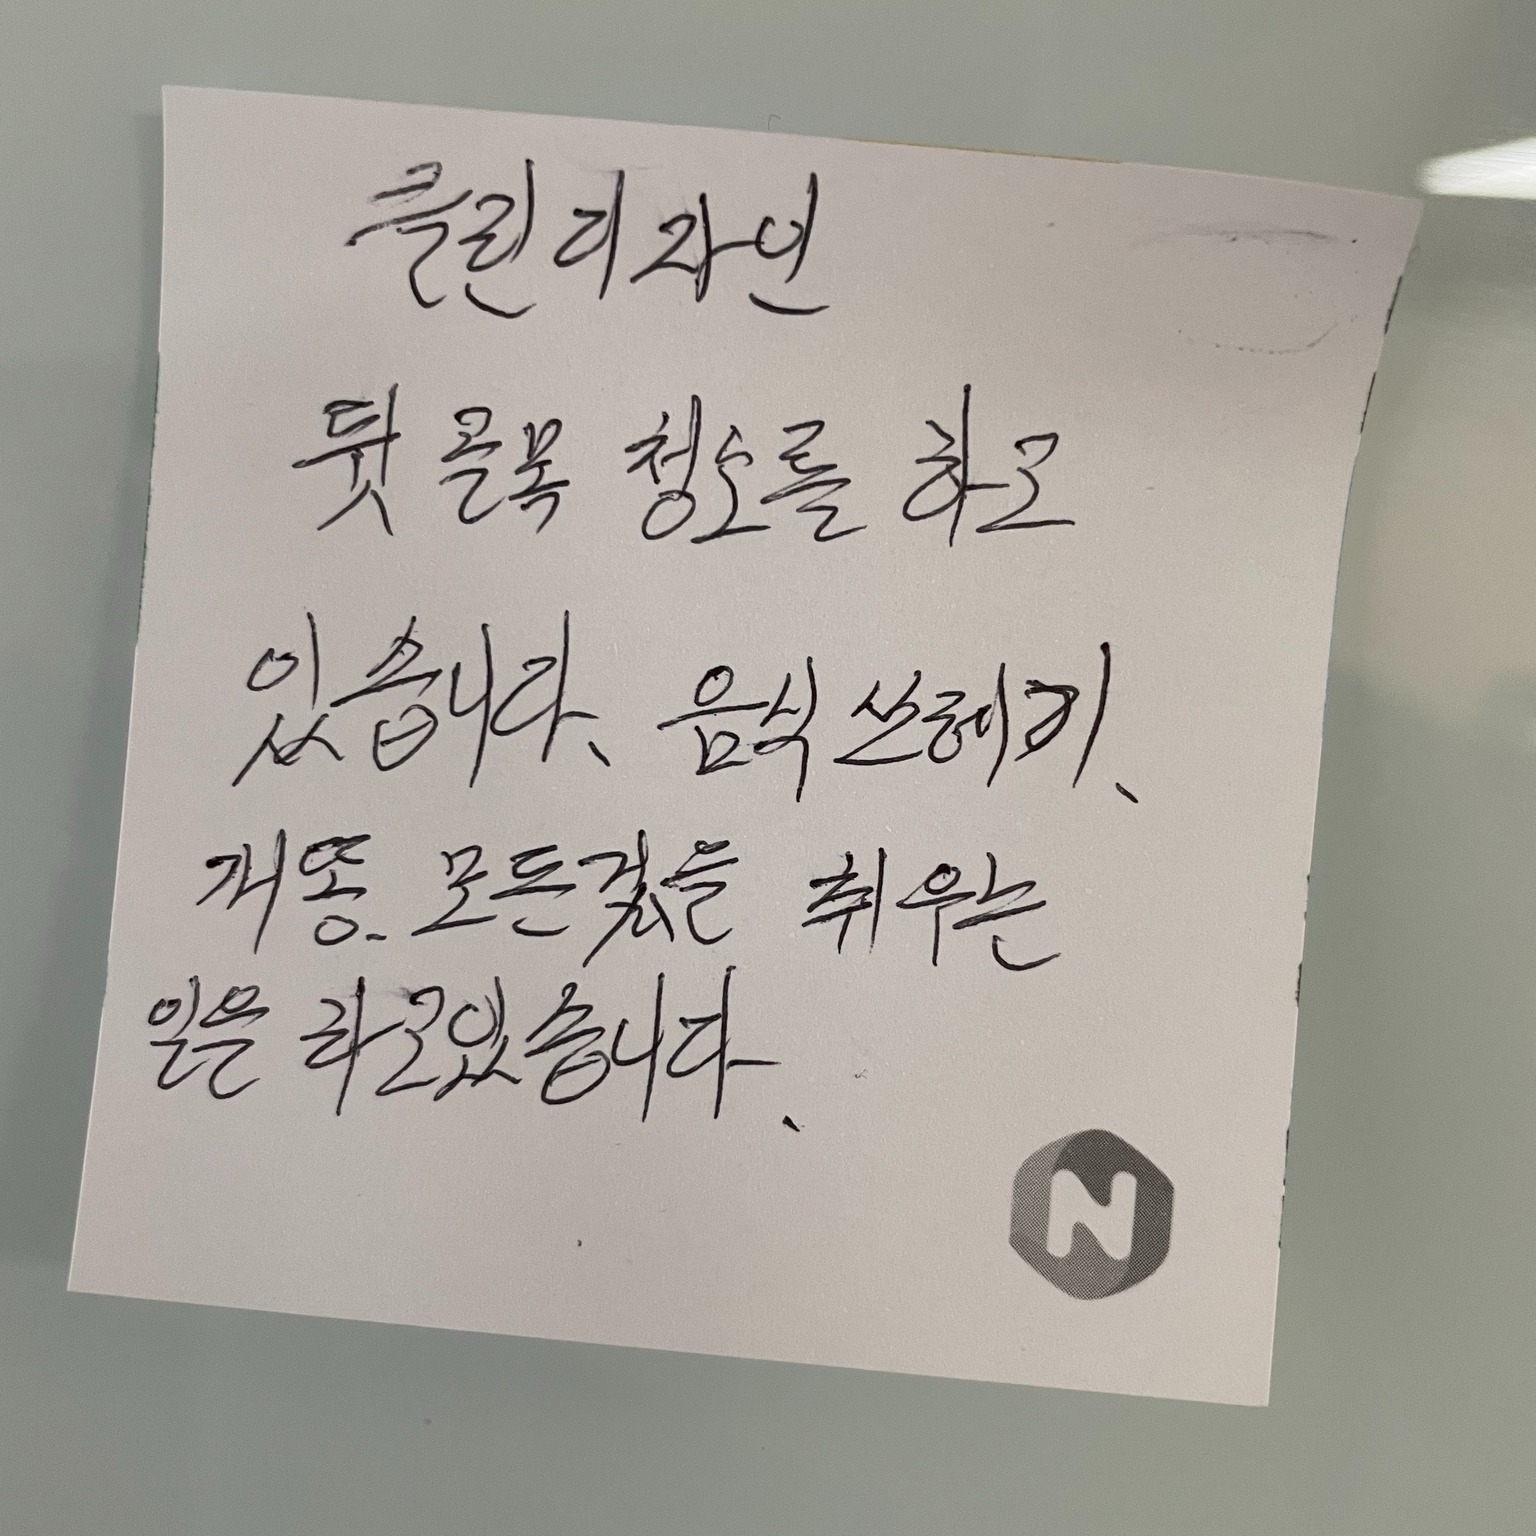 클린디자인
뒷골목 청소를 하고
있습니다. 음식 쓰레기.
개똥. 모든것을 취우는
일을 하고있습니다.
N